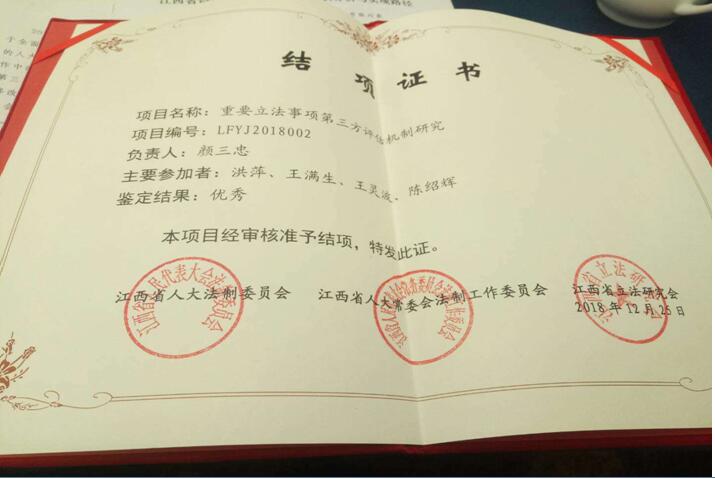 结项证书
项目名称：重要立法事项第三方评估机制研究
项目编号：LFYJ2018002
负责人：颜三忠
主要参加者：洪萍、王满生、王灵波、陈绍辉
鉴定结果：优秀
本项目经审核准予结项，特发此证。
江西省人大法制委员会
江西省人大常委会法制工作委员会
江西省立法研究会
2018年12月25日
江西省人民代表大会法制委员会
江西省立法研究会